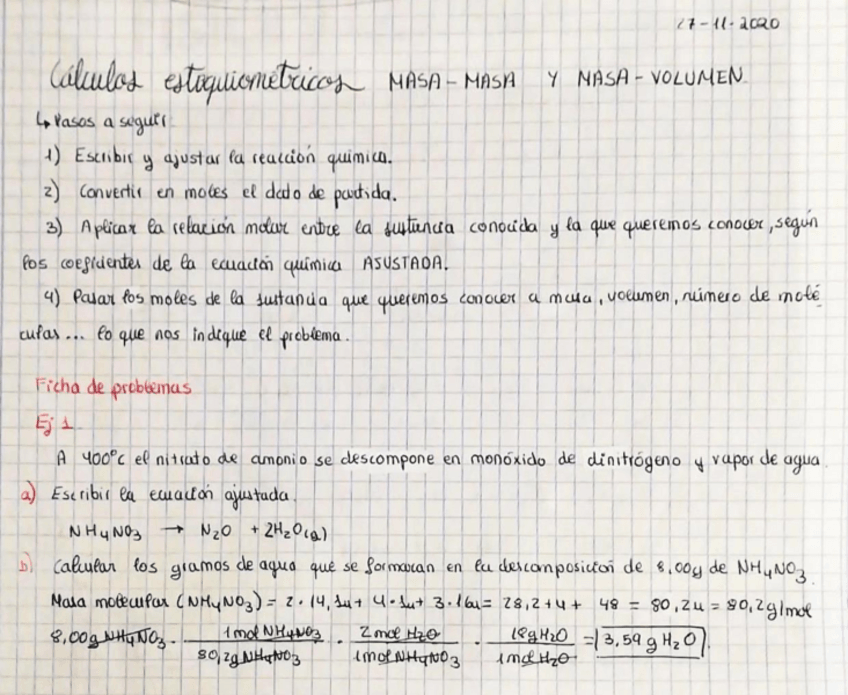 17-11-2020
Cálculos estequiométricos MASA-MASA Y MASA-VOLUMEN
↳ Pasos a seguir
1) Escribir y ajustar la reacción química.
2) Convertir en moles el dato de partida.
3) Aplicar la relación molar entre la sustancia conocida y la que queremos conocer, según
los coeficientes de la ecuación química AJUSTADA.
4) Pasar los moles de la sustancia que queremos conocer a masa, volumen, número de molé
culas... lo que nos indique el problema.
Ficha de problemas
Ej 1
A 400°C el nitrato de amonio se descompone en monóxido de dinitrógeno y vapor de agua.
a) Escribir la ecuación ajustada.
NH4NO3 → N2O + 2H2O(g)
b) Calcular los gramos de agua que se formaran en la descomposición de 8,00g de NH4NO3.
Masa molecular (NH4NO3) = 2·14,1u + 4·1u + 3·16u = 28,2+4+ 48 = 80,2u = 80,2g/mol
8,00g NH4NO3 · 1mol NH4NO3 / 80,2g NH4NO3 · 2mol H2O / 1mol NH4NO3 · 18g H2O / 1mol H2O = 3,59 g H2O.